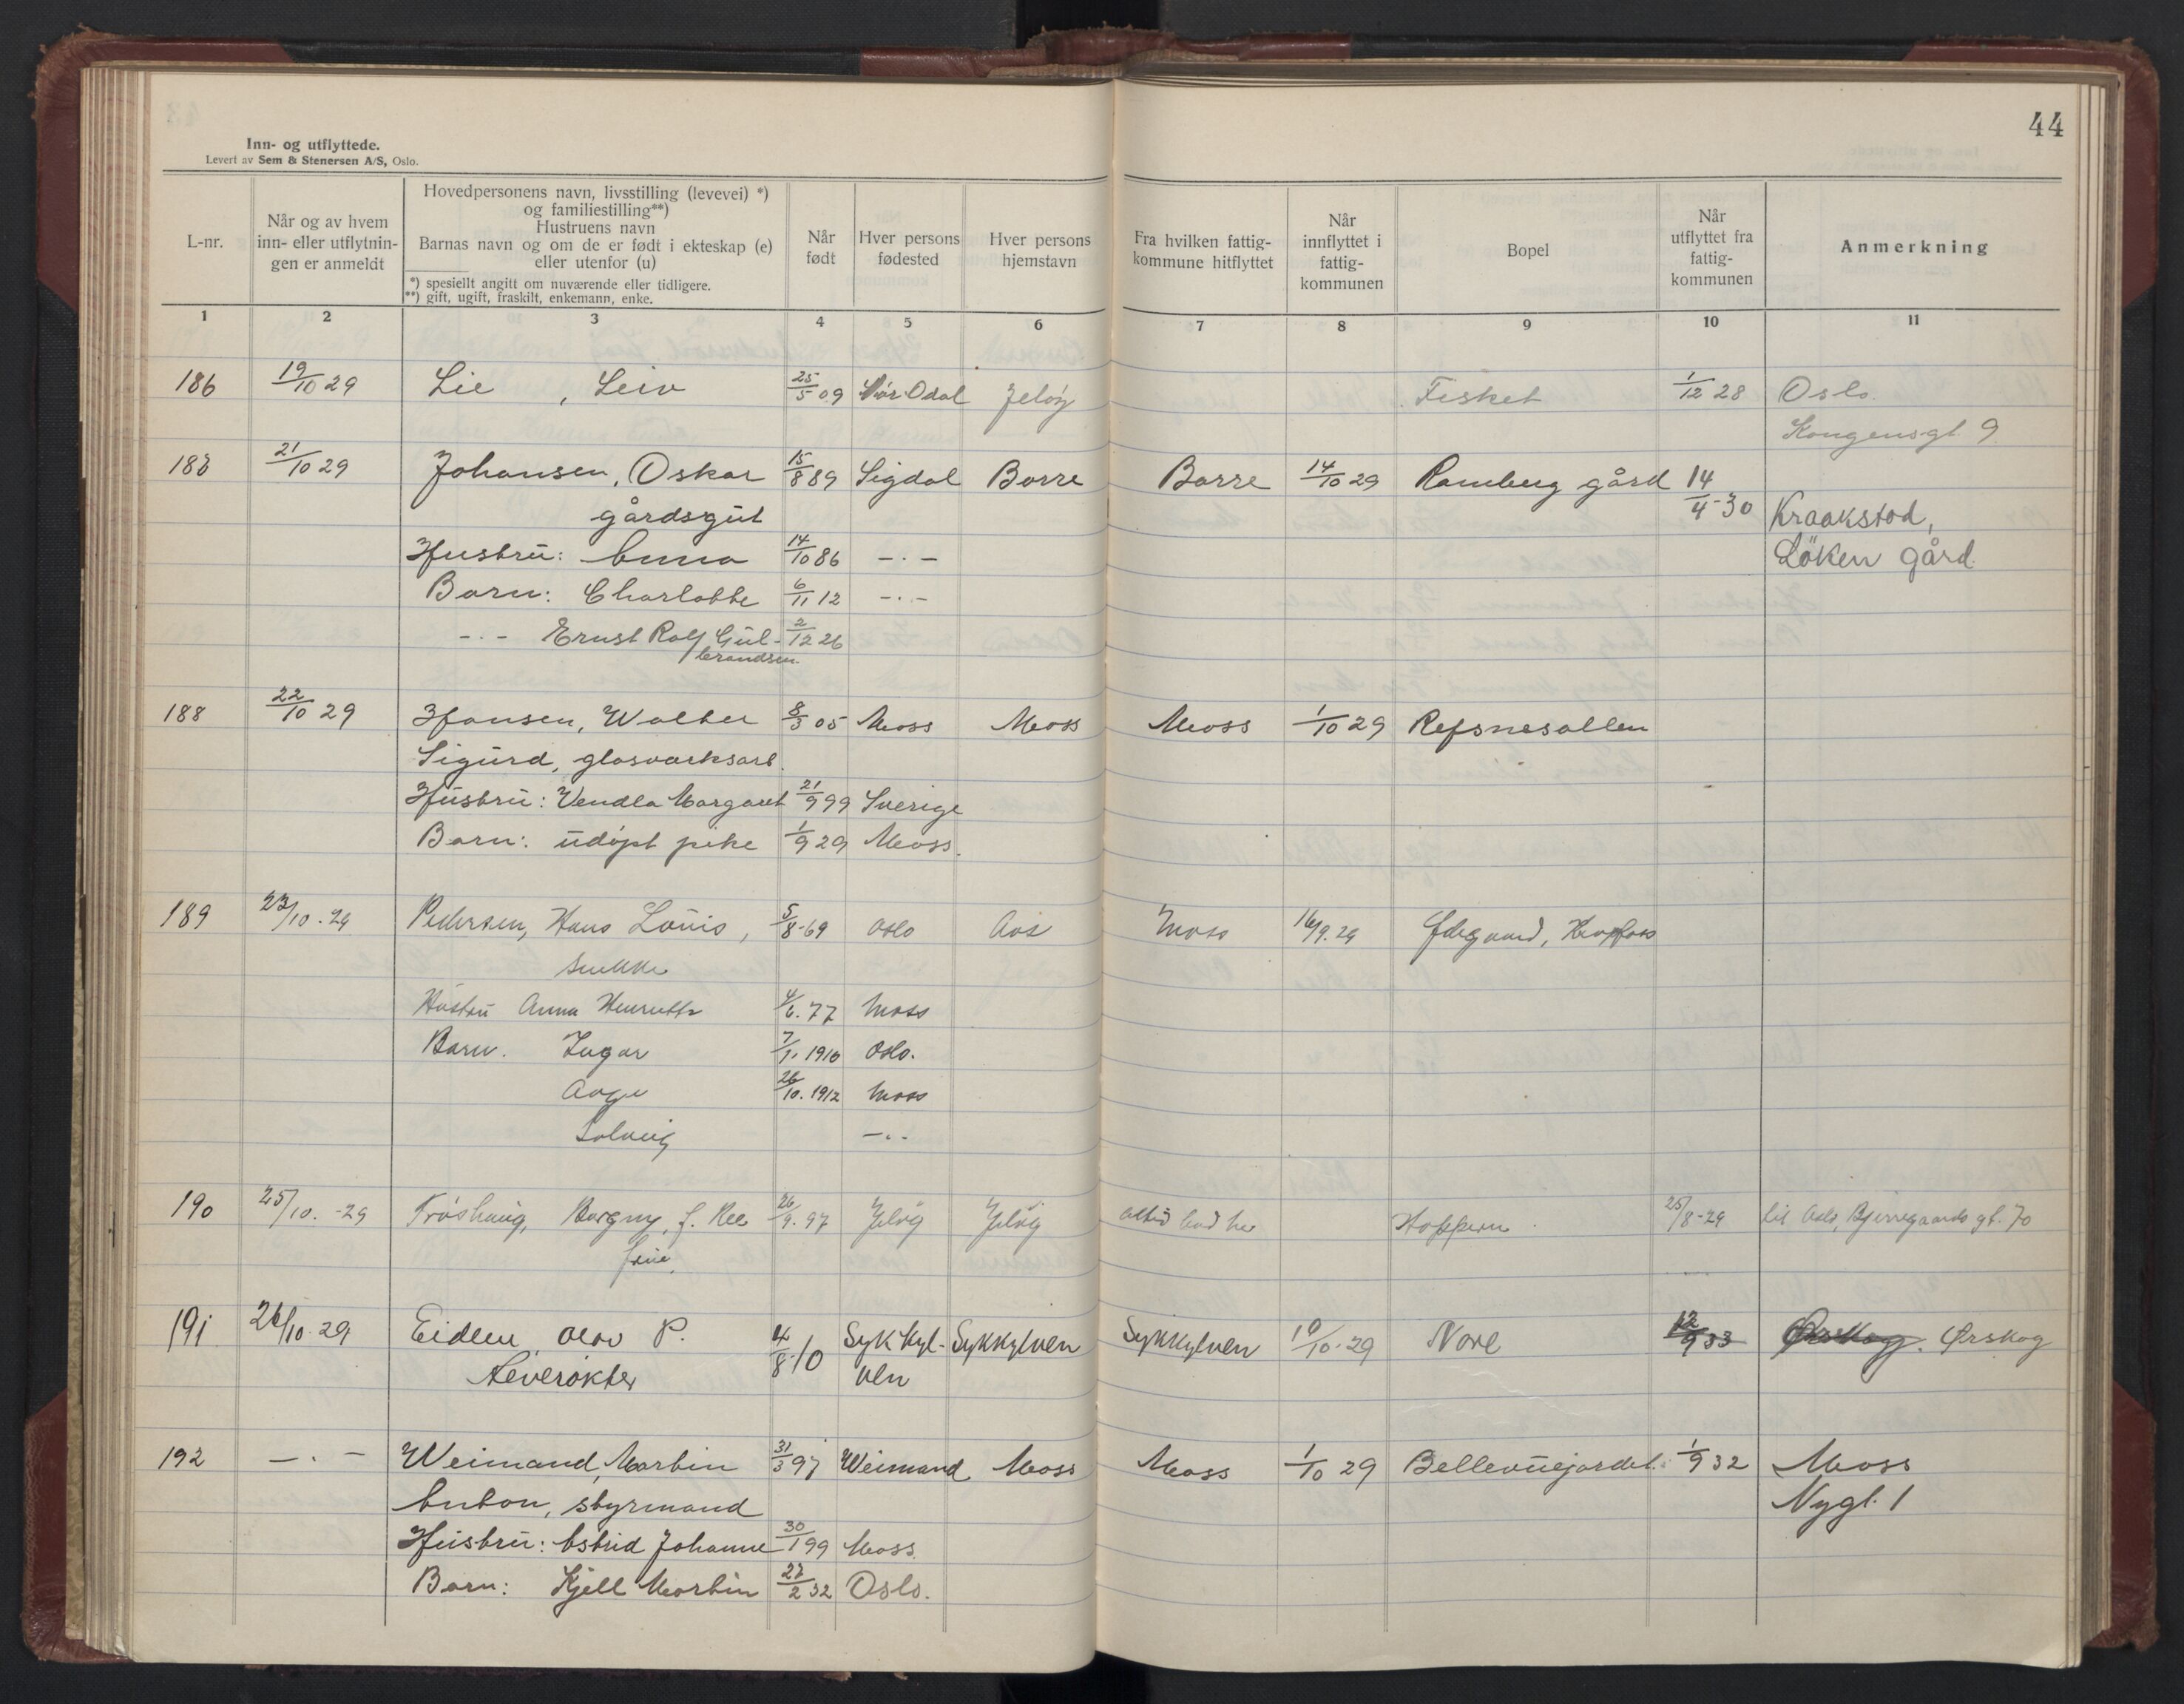 44
Inn- og utflyttede.
Levert av Sem & Stenersen A/S, Oslo.
L-nr.
Når og av hvem inn- eller utflytnin-gen er anmeldt
Hovedpersonens navn, livsstilling (levevei) *)
og familiestilling**)
Hustruens navn
Barnas navn og om de er født i ekteskap (e)
eller utenfor (u)
*) spesielt angitt om nuværende eller tidligere.
**) gift, ugift, fraskilt, enkemann, enke.
Når født
Hver persons fødested
Hver persons hjemstavn
Fra hvilken fattig-kommune hitflyttet
Når innflyttet i fattig-kommunen
Bopel
Når utflyttet fra fattig-kommunen
Anmerkning
1 2 3 4 5 6 7 8 9 10 11
186 19/10 29 Lie, Leiv 25/5 09 Odal Jeløy Fisket 1/12 28 Oslo.
Kongensgt. 9.
187 21/10 29 Johansen, Oskar 15/8 89 Sigdal Borre Borre 14/10 29 Ramberg gård 14/4-30 Kraakstad,
gårdsgut
Løken gård
Hustru: Anna 14/10 86 -·-
Barn: Charlotte 6/11 12 -·-
-·- Ernst Rolf Gul- 2/12 26
brandsen.
188 22/10 29 Hansen, Walter 8/3 05 Moss Moss Moss 1/10 29 Refsnesalleen
Sigurd, glasverksarb.
Hustru: Vendla Margaret 21/9 99 Sverige
Barn: udøpt pike 1/9 29 Moss.
189 23/10.29 Pedersen, Hans Louis, 5/8-69 Oslo Moss 16/9.29
Hustru Anna Henriette 4/6.77 Moss
Barn. Ingar 7/1.1910 Oslo.
Aage 26/10.1912 Moss
Solveig -·-
190 25/10.-29 Trøshaug, Borgny, f. Ree 26/9.97 Jeløy Jeløy altid bod her Hoppern 25/8-29 til Oslo, Bjerregaards gt. 70
frue.
191 26/10.29 Eidem, Olav P. 4/8-10 Sykkyl- Sykkylven Sykkylven 10/10-29 Nore 12/9 33 Ørskog. Ørskog
Reverøkter ven
192 -·- Weimand, Martin 31/3 97 Weimand Moss Moss 1/10 29 Bellevuejordet. 1/9 32 Moss
Anton, styrmand Nygt. 1
Hustru: Astrid Johanne 30/1 99 Moss
Barn: Kjell Martin 27/2 32 Oslo.